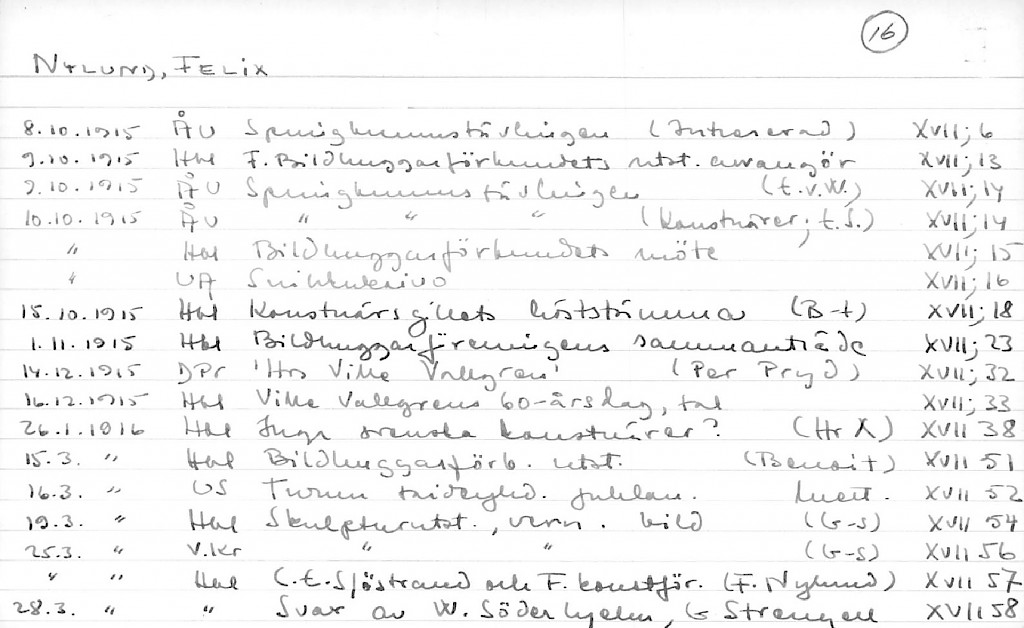 16
NYLUND, FELIX
8.10.1915 ÅU Springbrunnstävlingen (Intresserad) XVII; 6
9.10.1915 Hbl F. Bildhuggarförbundets utst. arrangör XVII; 13
9.10.1915 ÅU Springbrunnstävlingen (E.v.W.) XVII; 14
10.10.1915 ÅU " " " (Konstnärer; E.S.) XVII; 14
" Hbl Bildhuggarförbundets möte XVII; 15
" UA Suihkukaivo XVII; 16
15.10.1915 Hbl Konstnärsgillets höststämma (B-t) XVII; 18
1.11.1915 Hbl Bildhuggarföreningens sammanträde XVII; 23
14.12.1915 DPr 'Hos Ville Vallgren' (Per Pryd) XVII; 32
16.12.1915 Hbl Ville Vallgrens 60-årsdag, tal XVII; 33
26.1.1916 Hbl Inga svenska konstnärer? (Hr X) XVII 38
15.3. " Hbl Bildhuggarförb. utst. (Benoit) XVII 51
16.3. " US Turun taideyhd. juhlan. XVII 52
19.3. " Hbl Skulpturutst., vern. bild (G-S) XVII 54
25.3. " V.Kr " " (G-S) XVII 56
" " Hbl C.E. Sjöstrand och F. konstför. (F. Nylund) XVII 57
28.3. " " Svar av W. Söderhjelm, G Strengell XVII 58